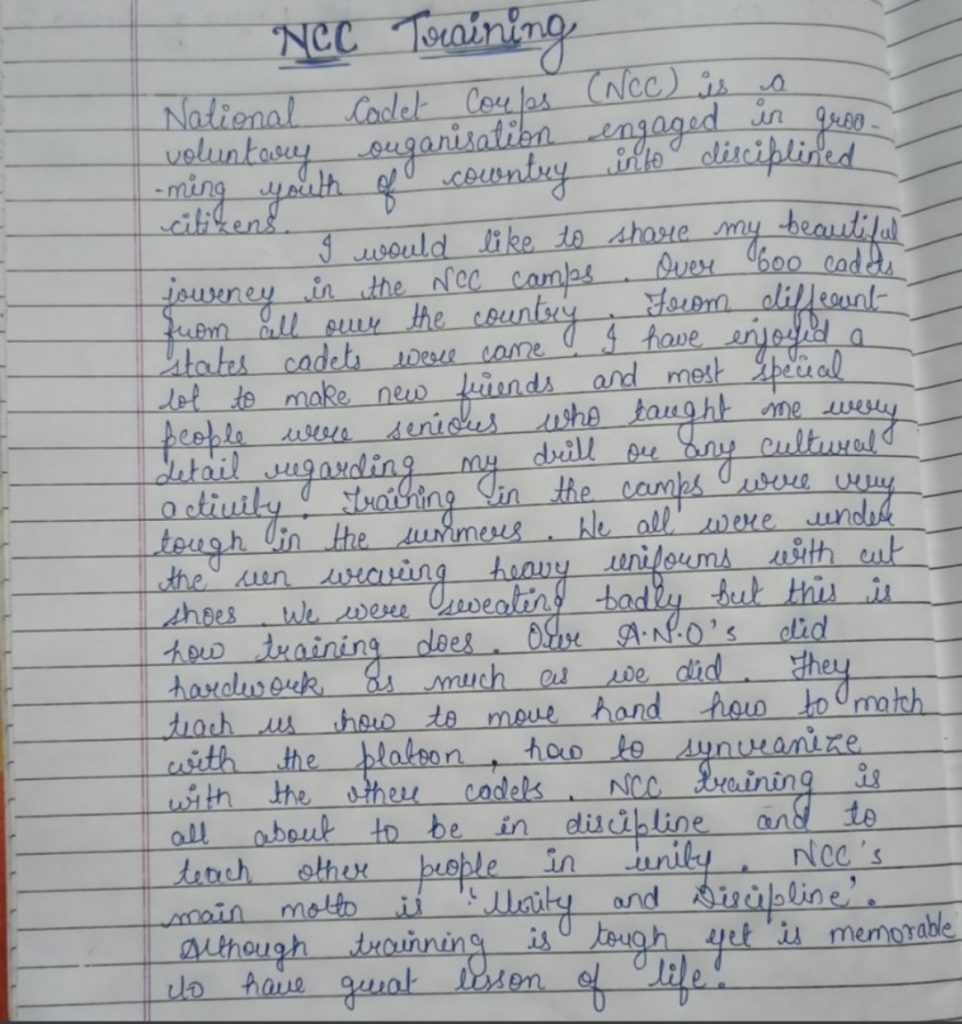 NCC Training
National Cadet Corps (NCC) is a
voluntary organisation engaged in groo-
-ming youth of country into disciplined
citizens.
I would like to share my beautiful
journey in the NCC camps. Over 600 cadets
from all over the country. From differant
states cadets were came. I have enjoyed a
lot to make new friends and most special
people were seniors who taught me very
detail regarding my drill or any cultural
activity. Training in the camps were very
tough in the summers. We all were under
the sun wearing heavy uniforms with cut
shoes. We were sweating badly but this is
how training does. Our A.N.O's did
hardwork as much as we did. They
teach us how to move hand how to match
with the platoon, how to syncranize
with the other cadets. NCC training is
all about to be in discipline and to
teach other people in unity. NCC's
main motto is 'Unity and Discipline'.
Although trainning is tough yet is memorable
to have great lesson of life.